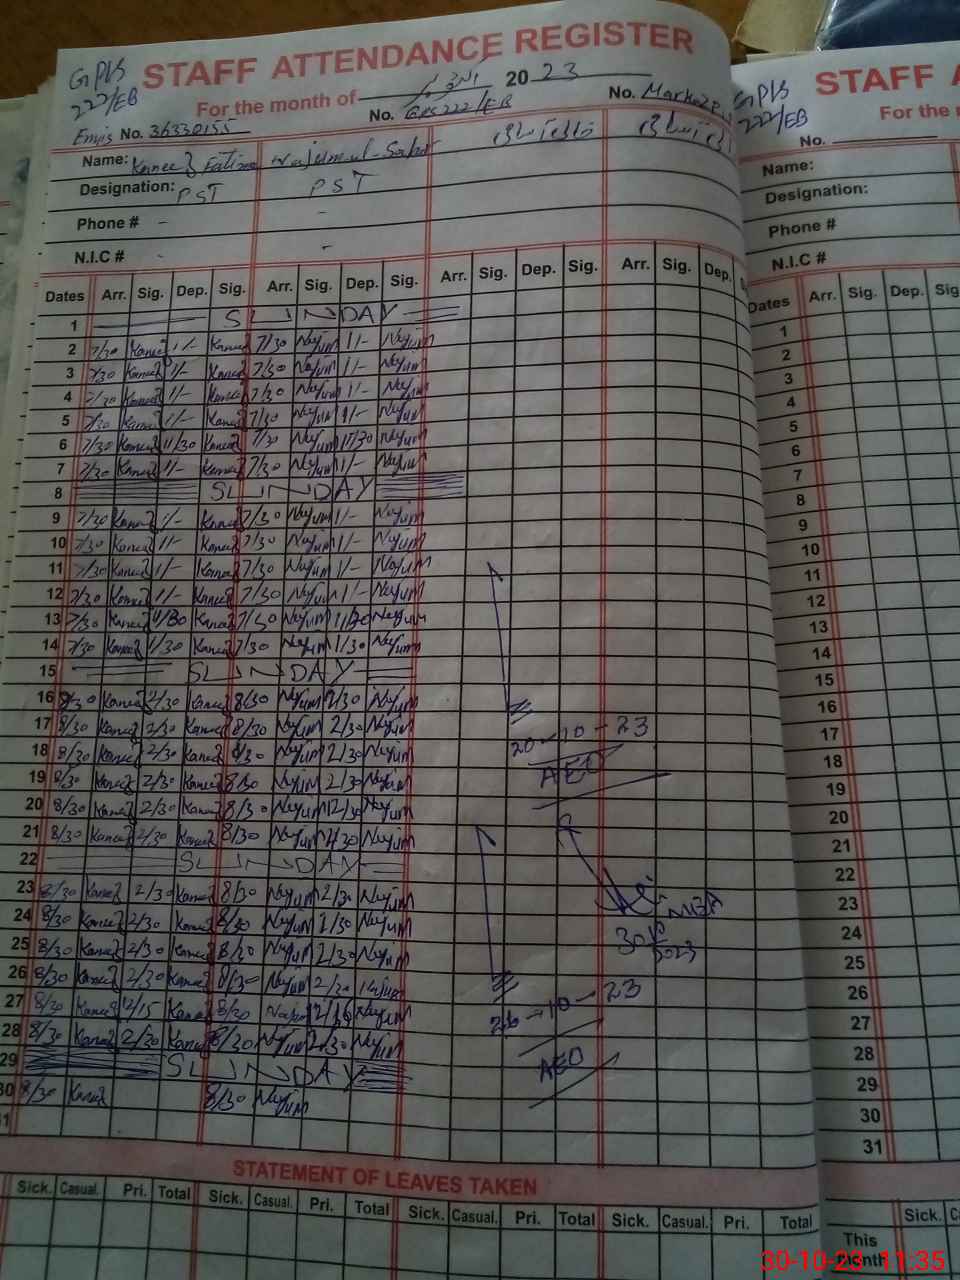 GPS STAFF ATTENDANCE REGISTER
222/EB For the month of 2023
Emis No. 36330155 No. GPS 222/EB No. Markaz
Name: Kaneez Fatima
Designation: PST PST
Phone # - -
N.I.C # - -
Dates Arr. Sig. Dep. Sig. Arr. Sig. Dep. Sig. Arr. Sig. Dep. Sig. Arr. Sig. Dep.
1 SUNDAY
2 7/30 Kaneez 1/- Kaneez 7/30 Najum 1/- Najum
3 7/30 Kaneez 1/- Kaneez 7/30 Najum 1/- Najum
4 7/30 Kaneez 1/- Kaneez 7/30 Najum 1/- Najum
5 7/30 Kaneez 1/- Kaneez 7/30 Najum 1/- Najum
6 7/30 Kaneez 11/30 Kaneez 7/30 Najum 11/30 Najum
7 7/30 Kaneez 1/- Kaneez 7/30 Najum 1/- Najum
8 SUNDAY
9 7/30 Kaneez 1/- Kaneez 7/30 Najum 1/- Najum
10 7/30 Kaneez 1/- Kaneez 7/30 Najum 1/- Najum
11 7/30 Kaneez 1/- Kaneez 7/30 Najum 1/- Najum
12 7/30 Kaneez 1/- Kaneez 7/30 Najum 1/- Najum
13 7/30 Kaneez 11/30 Kaneez 7/30 Najum 11/30 Najum
14 7/30 Kaneez 1/30 Kaneez 7/30 Najum 1/30 Najum
15 SUNDAY
16 8/30 Kaneez 2/30 Kaneez 8/30 Najum 2/30 Najum
17 8/30 Kaneez 2/30 Kaneez 8/30 Najum 2/30 Najum 20-10-23
18 8/30 Kaneez 2/30 Kaneez 8/30 Najum 2/30 Najum AEO
19 8/30 Kaneez 2/30 Kaneez 8/30 Najum 2/30 Najum
20 8/30 Kaneez 2/30 Kaneez 8/30 Najum 2/30 Najum
21 8/30 Kaneez 2/30 Kaneez 8/30 Najum 2/30 Najum
22 SUNDAY
23 8/30 Kaneez 2/30 Kaneez 8/30 Najum 2/30 Najum MEA
24 8/30 Kaneez 2/30 Kaneez 8/30 Najum 2/30 Najum 30 10 2023
25 8/30 Kaneez 2/30 Kaneez 8/30 Najum 2/30 Najum
26 8/30 Kaneez 2/30 Kaneez 8/30 Najum 2/30 Najum 26-10-23
27 8/30 Kaneez 12/15 Kaneez 8/30 Najum Najum
28 8/30 Kaneez 2/30 Kaneez 8/30 Najum 2/30 Najum AEO
29 SUNDAY
30 8/30 Kaneez 8/30 Najum
STATEMENT OF LEAVES TAKEN
Sick. Casual. Pri. Total Sick. Casual. Pri. Total Sick. Casual. Pri. Total Sick. Casual. Pri. Total
GPS STAFF
222/EB For the
No.
Name:
Designation:
Phone #
N.I.C #
Dates Arr. Sig. Dep.
1
2
3
4
5
6
7
8
9
10
11
12
13
14
15
16
17
18
19
20
21
22
23
24
25
26
27
28
29
30
31
Sick.
This month
30-10-23 11:35